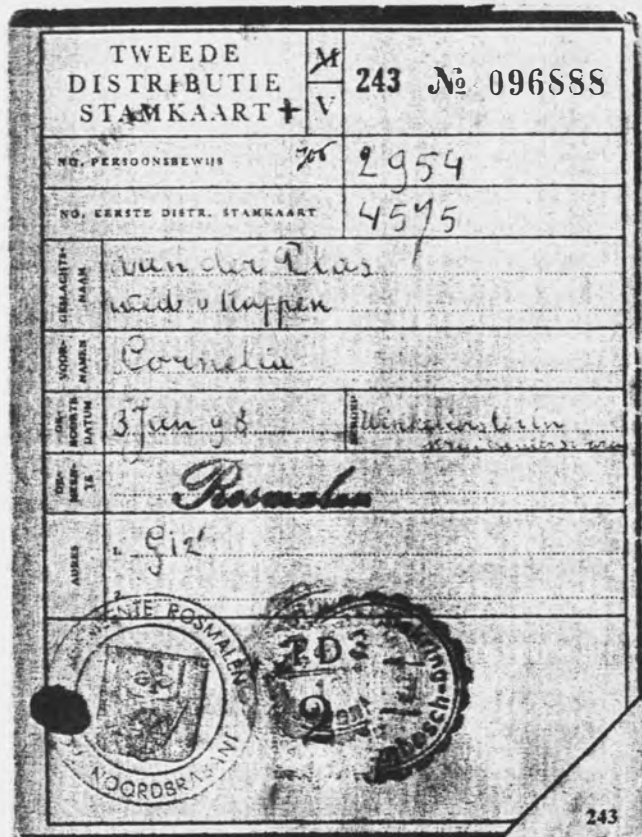 TWEEDE
DISTRIBUTIE
STAMKAART +
M
V
243 № 096888
NO. PERSOONSBEWIJS
2954
NO. EERSTE DISTR. STAMKAART 4575
GESLACHTS-
NAAM
van der Plas
wed v Nuppen
VOOR-
NAMEN
Cornelia
GE-
BOORTE
DATUM
3 Jan 98
BEROEP
Winkelierster in
GE-
MEEN-
TE
Rosmalen
ADRES
1. G12
2.
GEMEENTE ROSMALEN
NOORDBRABANT
T.D.
2
243